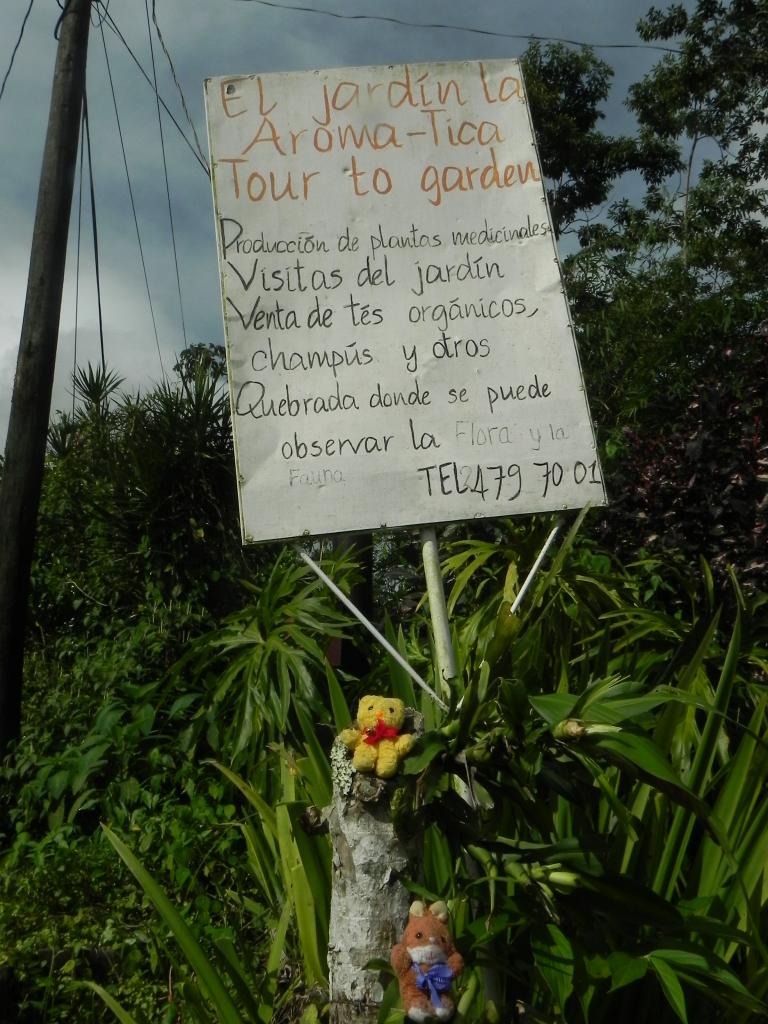 El jardín la
Aroma-Tica
Tour to garden
Producción de plantas medicinales
Visitas del jardín
Venta de tés orgánicos,
champús y otros
Quebrada donde se puede
observar la Flora y la
Fauna TEL2479 70 01